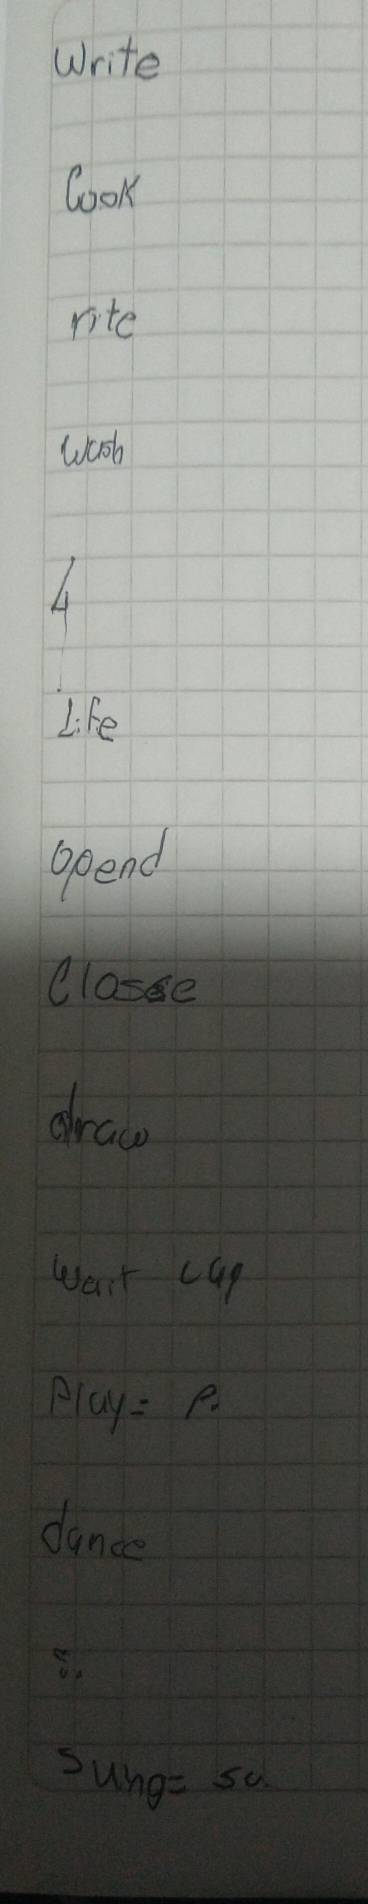 Write
Cook
rite
wash
4
Life
opend
Close
draw
wait cup
Play= P.
dance
Sung= su